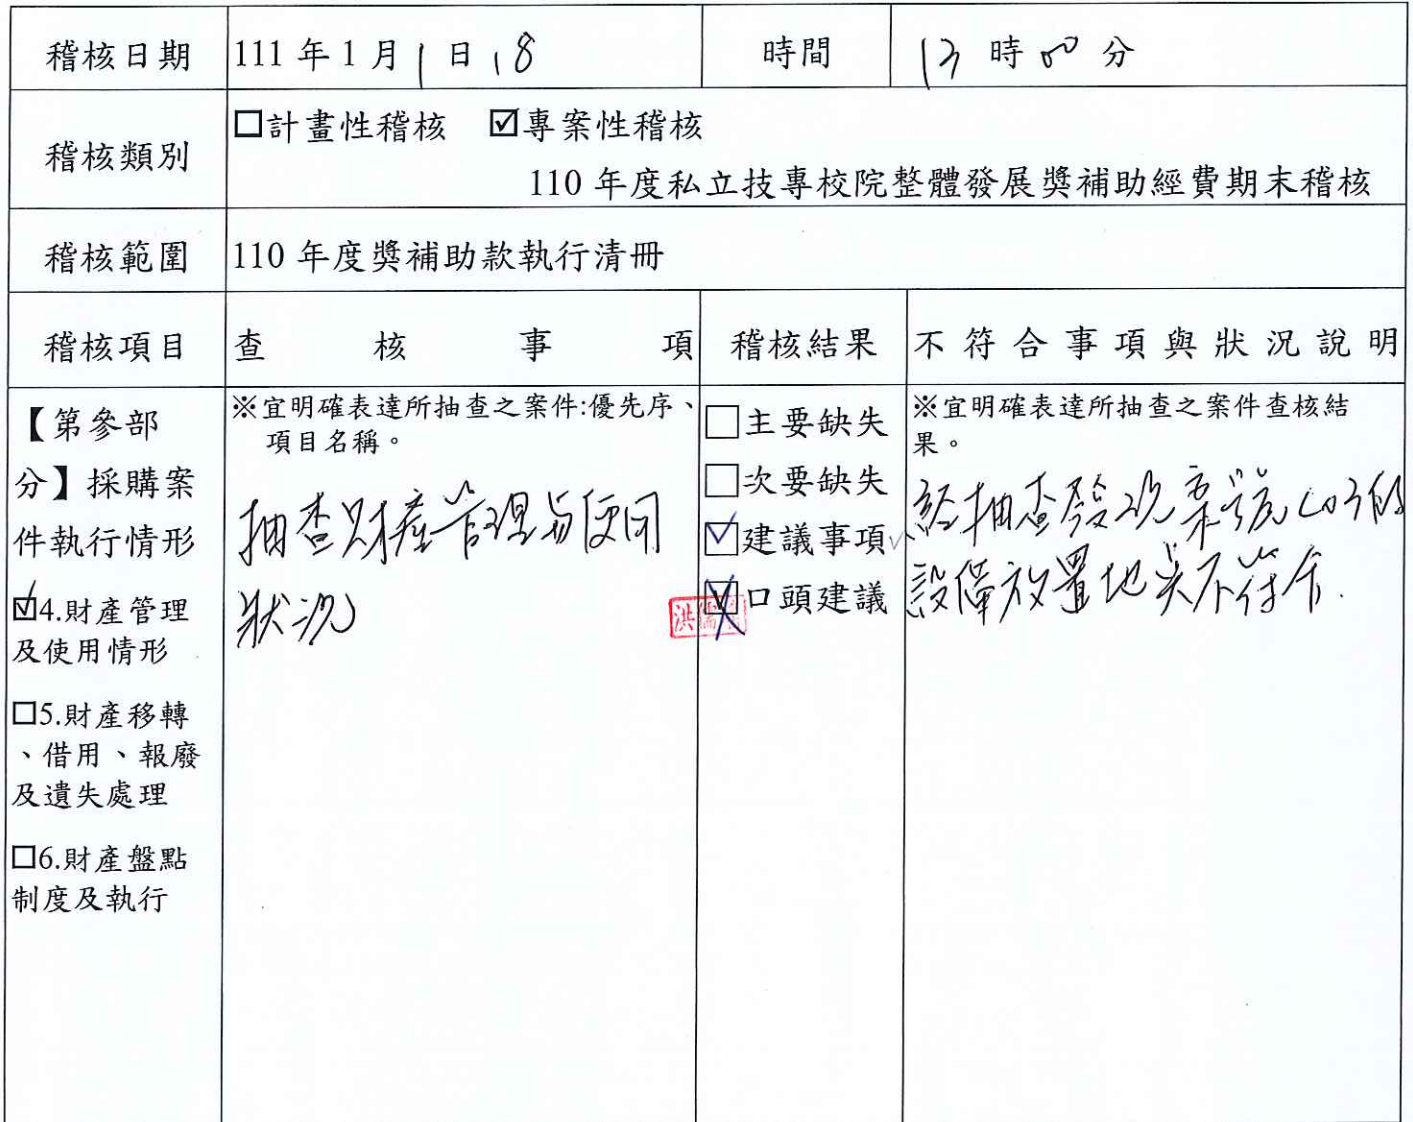 稽核日期 111 年 1 月 1 日 18 時間 13 時 00 分
稽核類別 □計畫性稽核 ☑專案性稽核
110 年度私立技專校院整體發展獎補助經費期末稽核
稽核範圍 110 年度獎補助款執行清冊
稽核項目 查核事項 稽核結果 不符合事項與狀況說明
【第參部
分】採購案
件執行情形
☑4.財產管理
及使用情形
□5.財產移轉
、借用、報廢
及遺失處理
□6.財產盤點
制度及執行
※宜明確表達所抽查之案件:優先序、
項目名稱。
抽查財產管理與使用
狀況
□主要缺失
□次要缺失
☑建議事項
☑口頭建議
※宜明確表達所抽查之案件查核結
果。
經抽查發現案號
設備放置地點不符合.